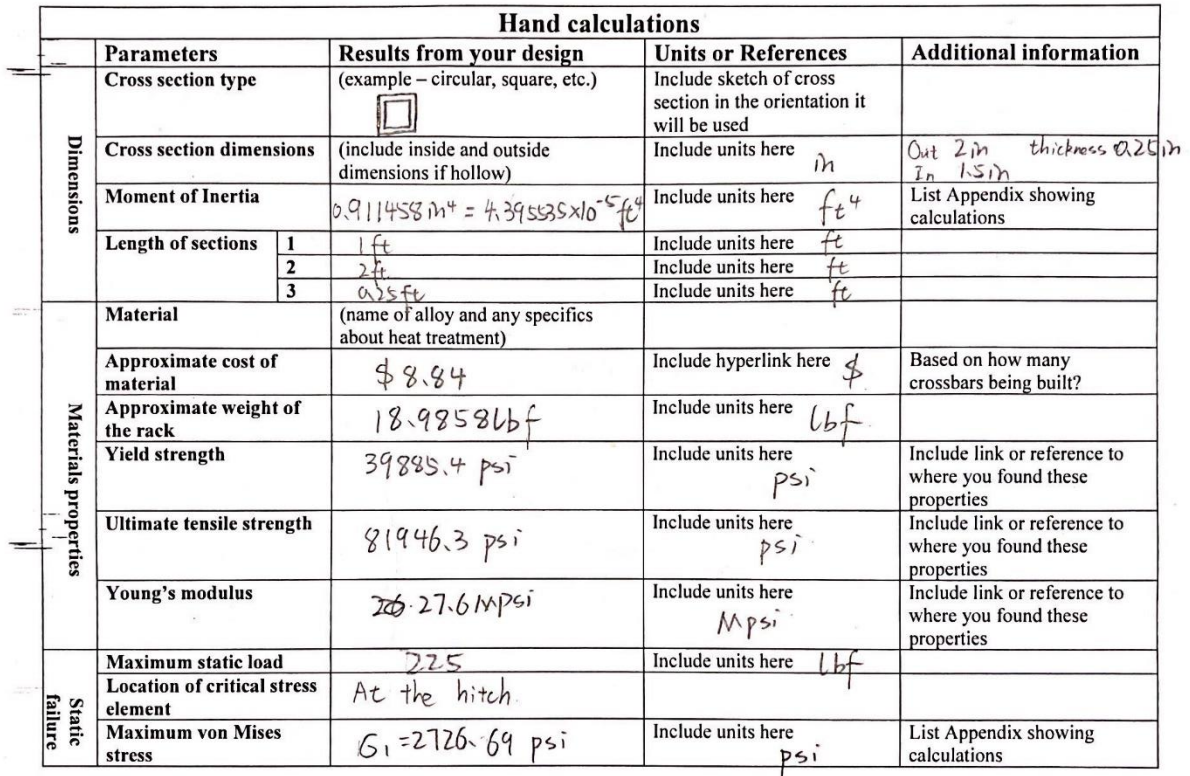 Hand calculations
Parameters Results from your design Units or References Additional information
Dimensions
Cross section type (example – circular, square, etc.) Include sketch of cross
section in the orientation it
will be used
Cross section dimensions (include inside and outside Include units here in Out 2in thickness 0.25in
dimensions if hollow) In 1.5in
Moment of Inertia 0.911458in⁴ = 4.395535x10⁻⁵ft⁴ Include units here ft⁴ List Appendix showing
calculations
Length of sections 1 1ft Include units here ft
2 2ft. Include units here ft
3 0.25ft Include units here ft
Materials properties
Material (name of alloy and any specifics
about heat treatment)
Approximate cost of $8.84 Include hyperlink here $ Based on how many
material crossbars being built?
Approximate weight of 18.9858lbf Include units here lbf
the rack
Yield strength 39885.4 psi Include units here psi Include link or reference to
where you found these
properties
Ultimate tensile strength 81946.3 psi Include units here psi Include link or reference to
where you found these
properties
Young's modulus 27.6Mpsi Include units here Mpsi Include link or reference to
where you found these
properties
Static failure
Maximum static load 225 Include units here lbf
Location of critical stress At the hitch.
element
Maximum von Mises G₁=2726.69 psi Include units here psi List Appendix showing
stress calculations